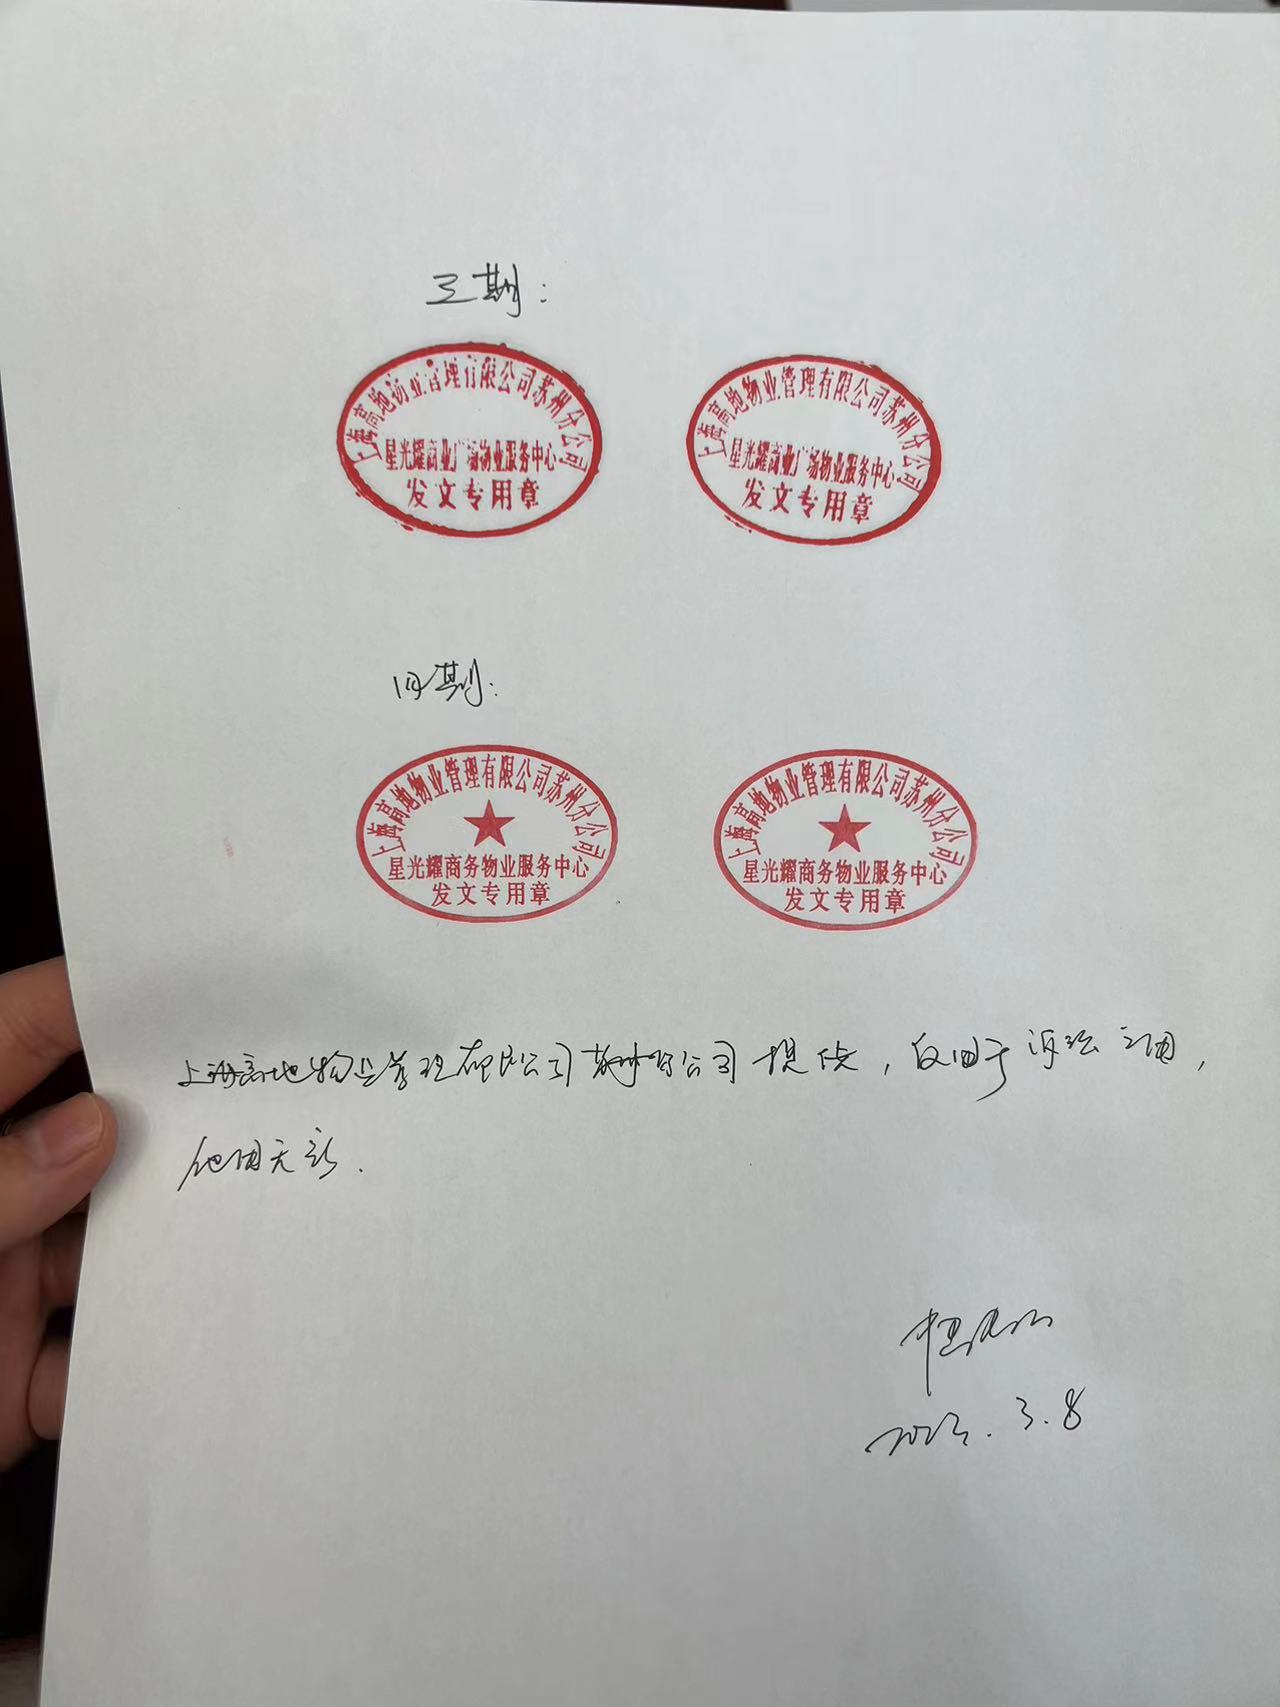 三期：
上海高地物业管理有限公司苏州分公司
星光耀商业广场物业服务中心
发文专用章
上海高地物业管理有限公司苏州分公司
星光耀商业广场物业服务中心
发文专用章
四期：
上海高地物业管理有限公司苏州分公司
星光耀商务物业服务中心
发文专用章
上海高地物业管理有限公司苏州分公司
星光耀商务物业服务中心
发文专用章
上海高地物业管理有限公司苏州分公司提供，仅用于诉讼之用，
他用无效.
3.8